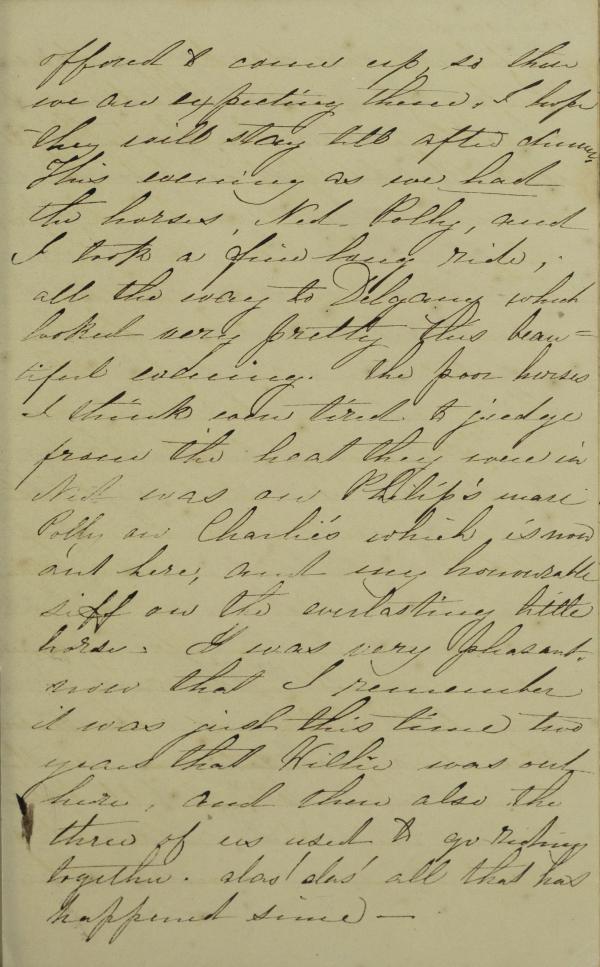 offered to come up, so then
we are expecting them. I hope
they will stay till after dinner,
This evening as we had
the horses, Ned. Polly, and
I took a fine long ride,
all the way to Delgany which
looked very pretty this beau=
tiful evening. The poor horses
I think were tired to judge
from the heat they were in
Ned was on Philip's mare
Polly on Charlie's which is now
out here, and my honourable
self on the everlasting little
horse. It was very pleasant.
now that I remember
it was just this time two
years that Willie was out
here, and then also the
three of us used to go riding
together. alas! alas! all that has
happened since —